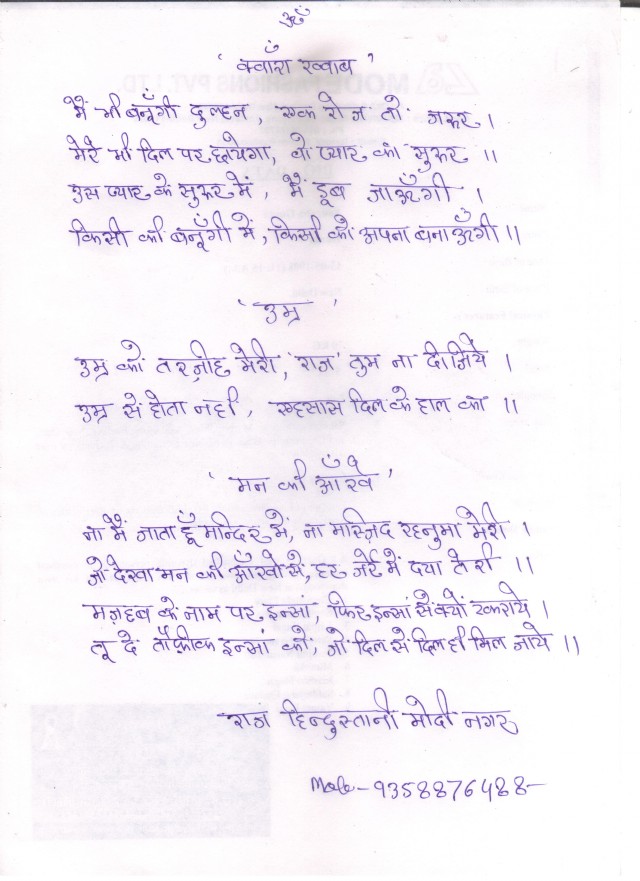 ॐ
'क्वाँरा ख्वाब'
मैं भी बनूँगी दुल्हन, एक रोज तो जरूर ।
मेरे भी दिल पर छायेगा, वो प्यार का सुरूर ॥
उस प्यार के सुरूर में, मैं डूब जाऊँगी ।
किसी की बनूँगी में, किसी को अपना बनाऊँगी ॥
'उम्र'
उम्र को तरज़ीह मेरी, 'राज' तुम ना दीजिये ।
उम्र से होता नहीं, एहसास दिल के हाल का ॥
'मन की आँखें'
ना मैं जाता हूँ मन्दिर में, ना मस्ज़िद रहनुमा मेरी ।
जो देखा मन की आँखों से, हर ज़र्रे में दया तेरी ॥
मज़हब के नाम पर इन्सां, फिर इन्सां से क्यों टकराये ।
तू दे तौफ़ीक इन्सां को, जो दिल से दिल ही मिल जाये ॥
राज हिन्दुस्तानी मोदी नगर